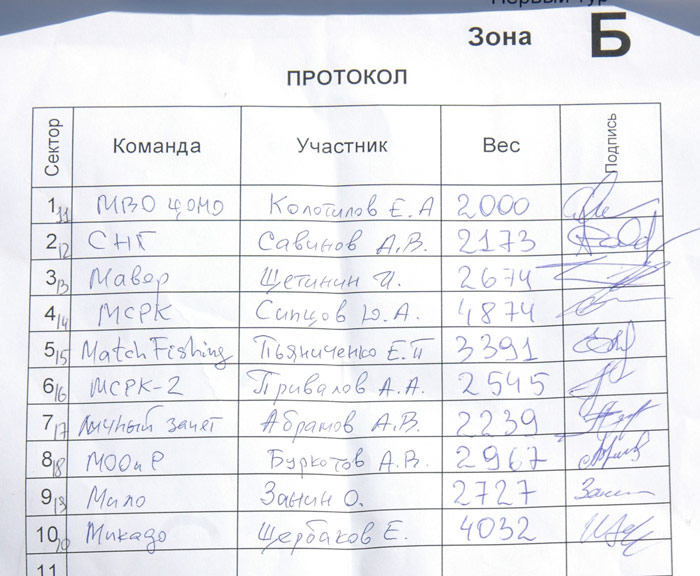 Первый тур
Зона Б
ПРОТОКОЛ
Сектор Команда Участник Вес Подпись
1 11 МВО ЦОМО Колотилов Е.А 2000
2 12 СНГ Савинов А.В. 2173
3 13 Мавер Щетинин И. 2674
4 14 МСРК Сипцов Ю.А. 4874
5 15 MatchFishing Пьяниченко Е.П 3391
6 16 МСРК-2 Привалов А.А. 2545
7 17 Личный зачет Абрамов А.В. 2239
8 18 МООиР Буркотов А.В. 2967
9 19 Мило Занин О. 2727
10 20 Микадо Щербаков Е. 4032
11